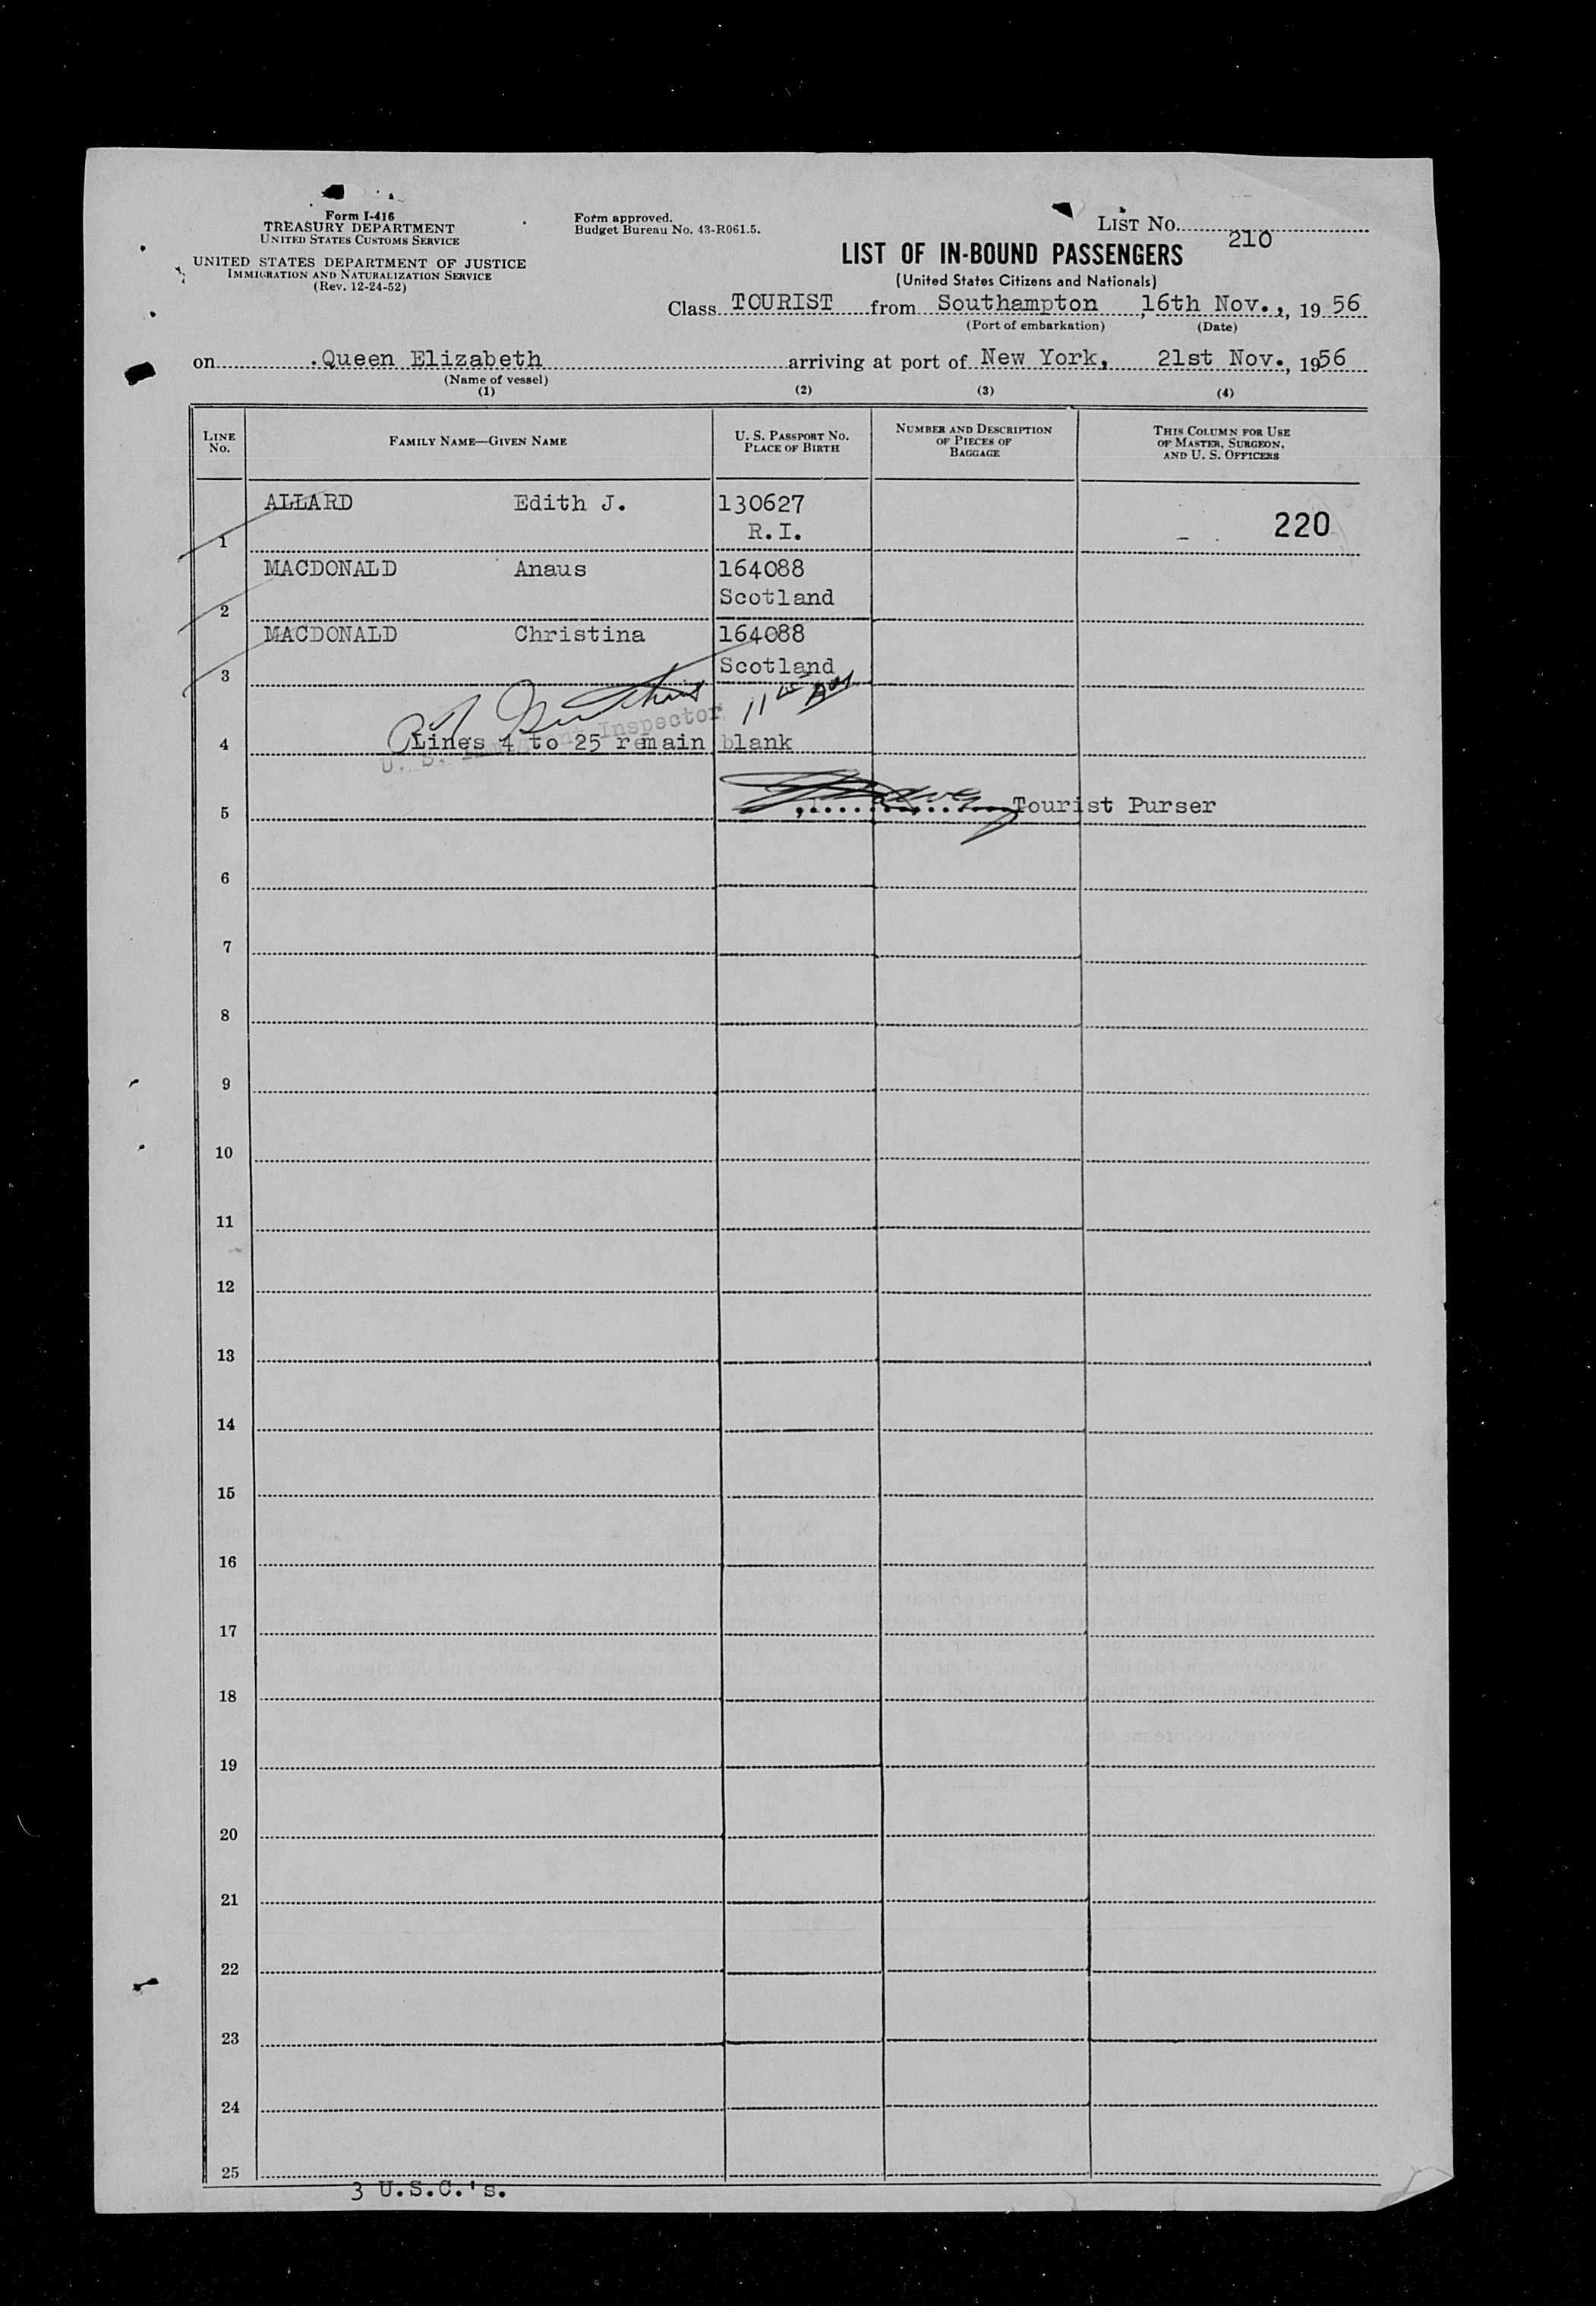 Form I-416
TREASURY DEPARTMENT
UNITED STATES CUSTOMS SERVICE
UNITED STATES DEPARTMENT OF JUSTICE
IMMIGRATION AND NATURALIZATION SERVICE
(Rev. 12-24-52)
Form approved.
Budget Bureau No. 43-R061.5.
LIST No. 210
LIST OF IN-BOUND PASSENGERS
(United States Citizens and Nationals)
Class TOURIST from Southampton, 16th Nov., 1956
(Port of embarkation) (Date)
on Queen Elizabeth arriving at port of New York, 21st Nov., 1956
(Name of vessel)
(1) (2) (3) (4)
LINE No. FAMILY NAME—GIVEN NAME U. S. PASSPORT No. PLACE OF BIRTH NUMBER AND DESCRIPTION OF PIECES OF BAGGAGE THIS COLUMN FOR USE OF MASTER, SURGEON, AND U. S. OFFICERS
1 ALLARD Edith J. 130627 R.I. 220
2 MACDONALD Anaus 164088 Scotland
3 MACDONALD Christina 164088 Scotland
U. S. Inspector
4 Lines 4 to 25 remain blank
5 Tourist Purser
6
7
8
9
10
11
12
13
14
15
16
17
18
19
20
21
22
23
24
25
3 U.S.C.'s.